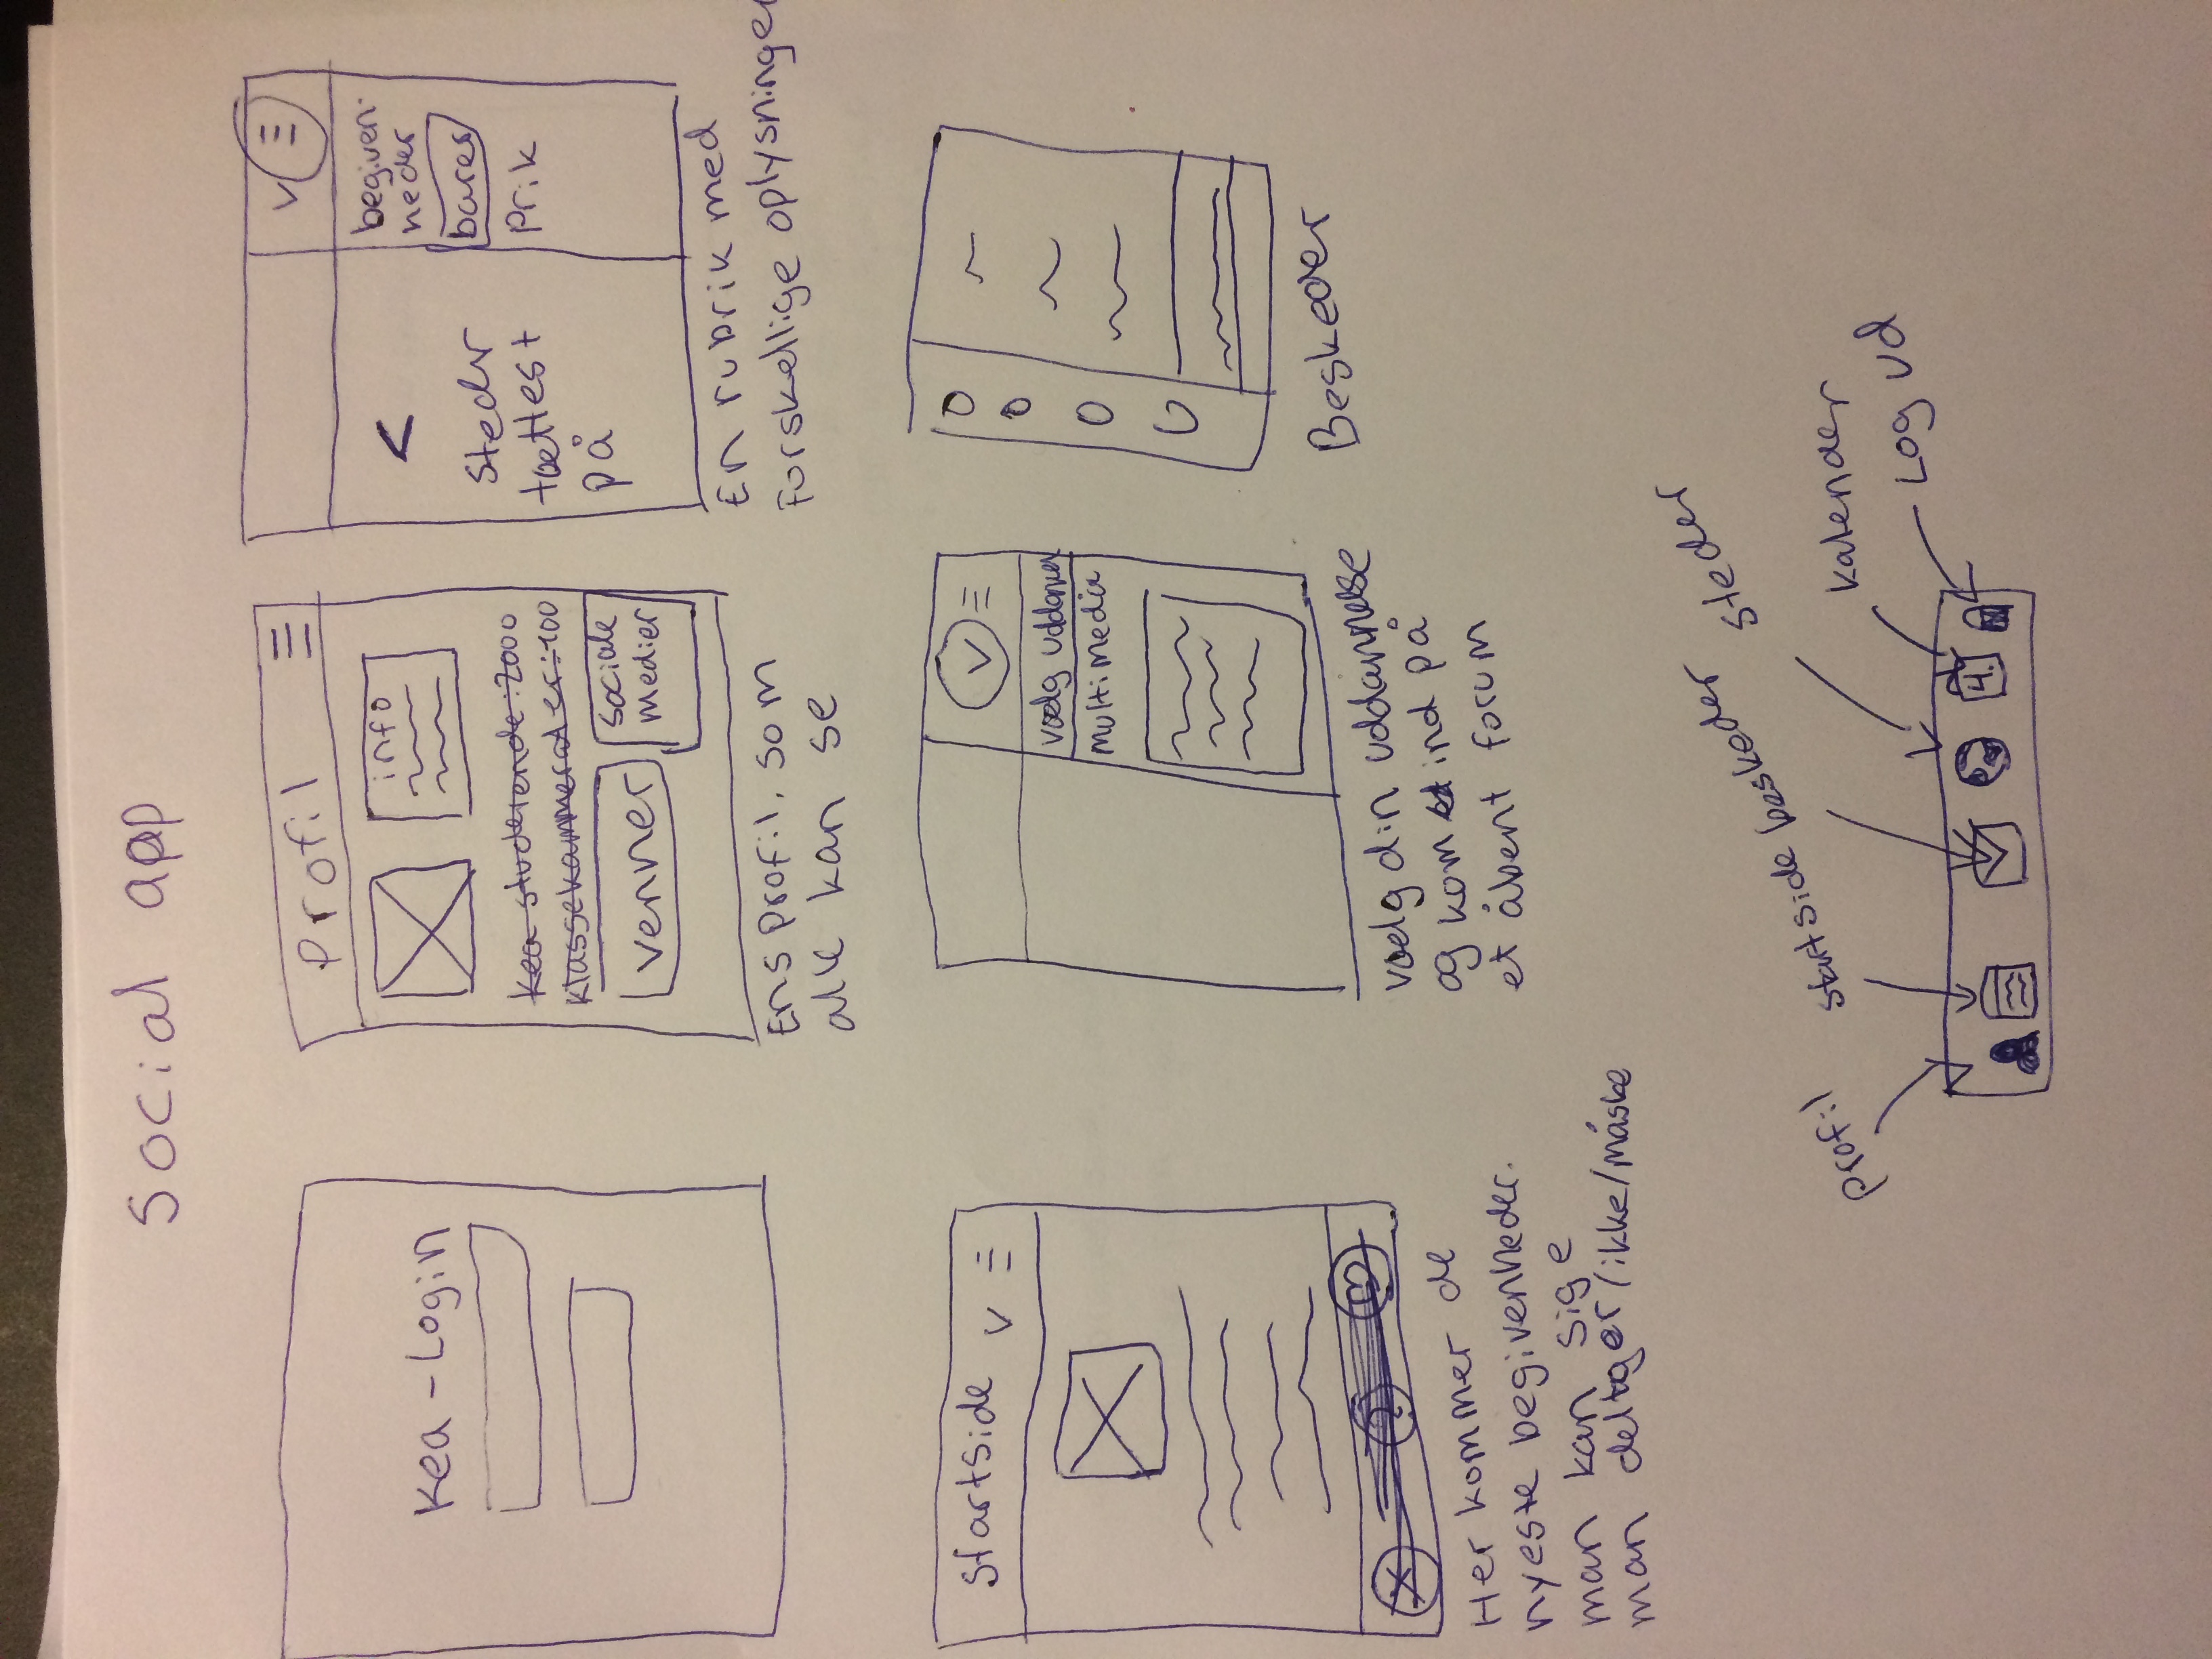 Social app
Kea - Login
Profil
info
Kea studerende: 2000
Klassekammerater: 100
venner
sociale
medier
Ens profil, som
alle kan se
<
Steder
tættest
på
begiven-
heder
barer
Prik
En rubrik med
Forskellige oplysninger
Startside
Her kommer de
nyeste begivenheder.
man kan sige
man deltager/ikke/måske
vælg uddannel
multimedia
vælg din uddannelse
og kom ind på
et åbent forum
Beskeder
profil
startside
beskeder
steder
kalender
Log ud
4.